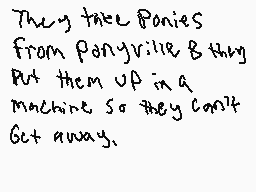 They take Ponies
from Ponyville & they
Put them up in a
machine so they can't
Get away.